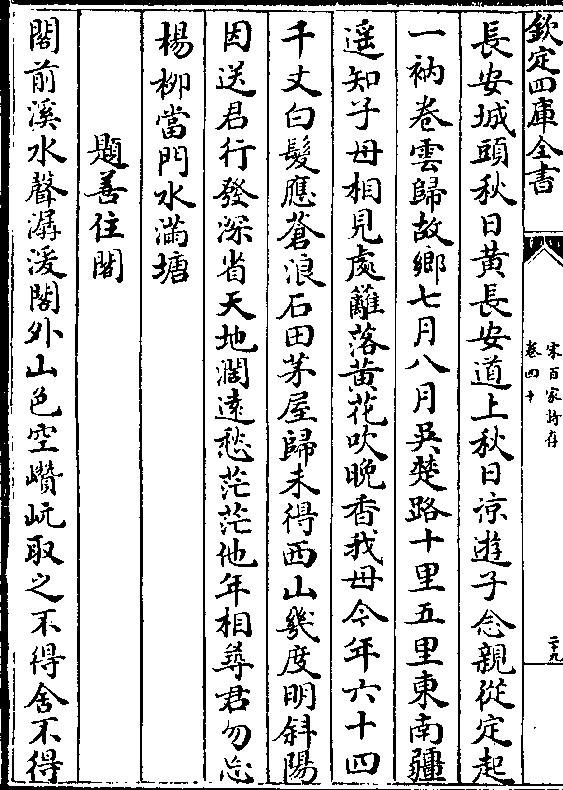 欽定四庫全書
宋百家詩存
卷四十
二十九
長安城頭秋日黃長安道上秋日凉遊子念親從定起
一衲卷雲歸故鄉七月八月吳楚路十里五里東南疆
遥知子母相見處籬落黃花吹晚香我母今年六十四
千丈白髮應蒼浪石田茅屋歸未得西山幾度明斜陽
因送君行發深省天地濶遠愁茫茫他年相尋君勿忘
楊柳當門水滿塘
題善住閣
閣前溪水聲潺湲閣外山色空巑岏取之不得舍不得